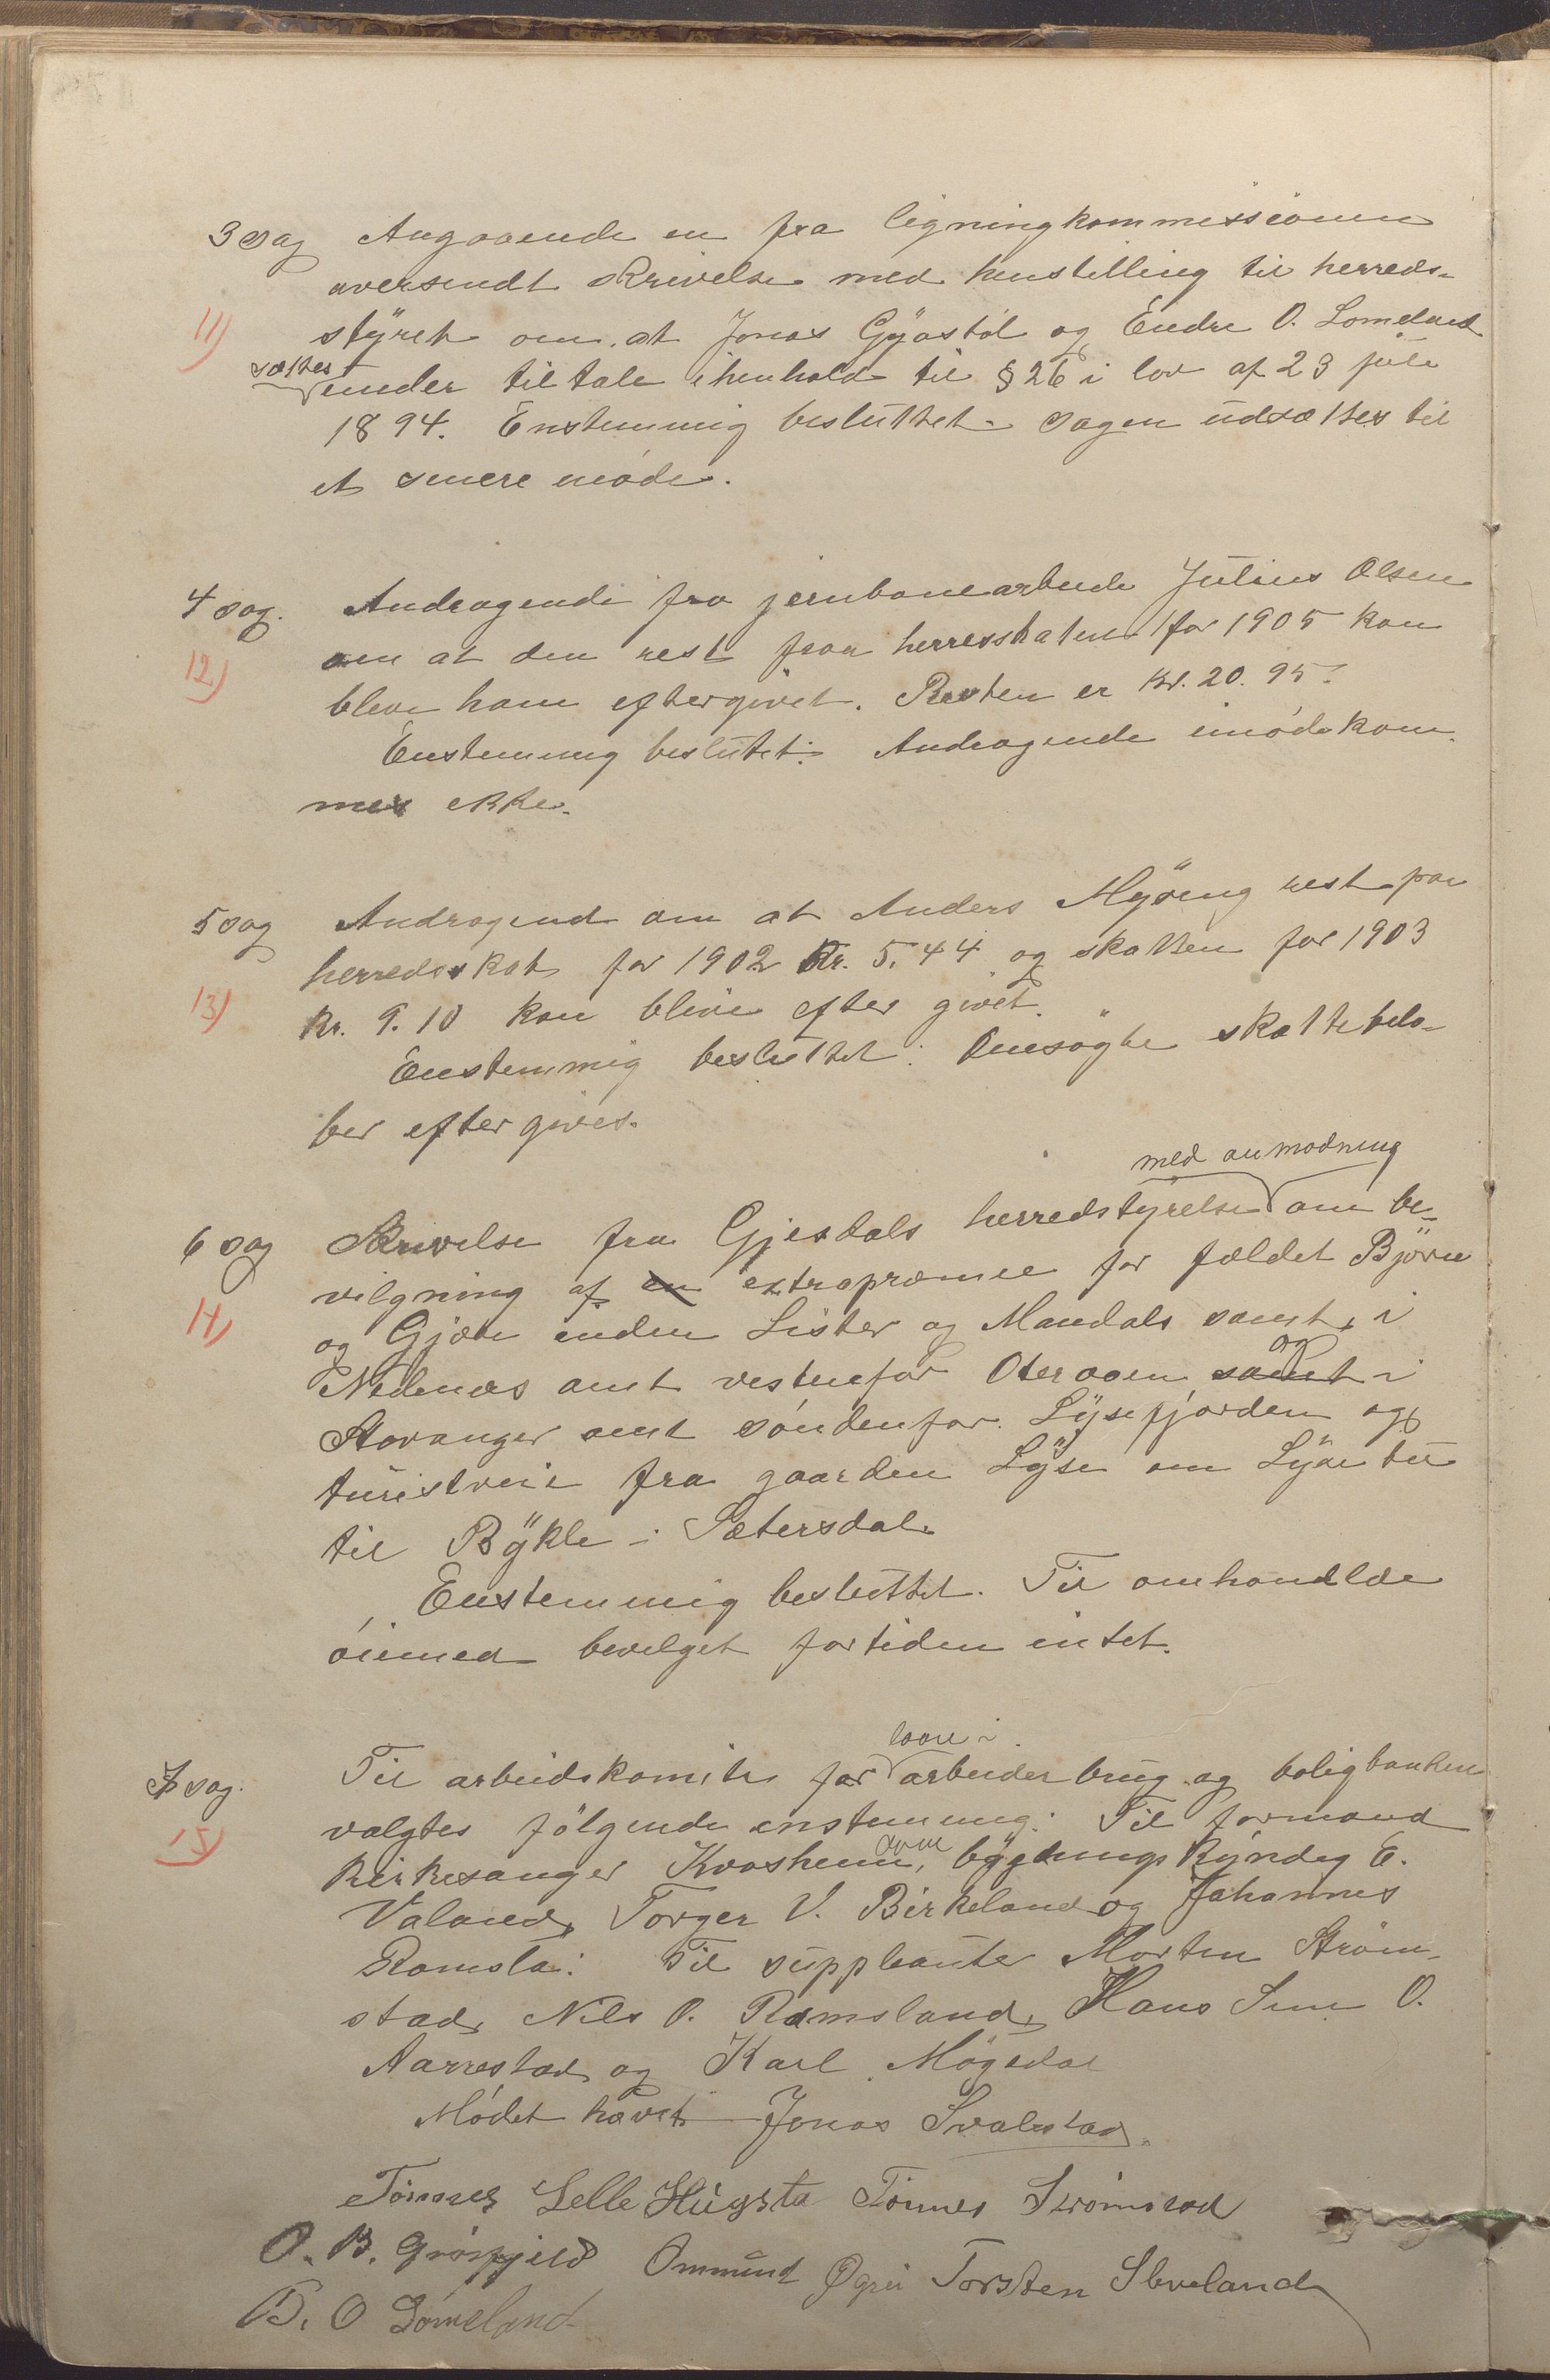 3 sag Angaaende en fra ligningkommissionen
oversendt skrivelse med henstilling til herreds-
11) styret om at Jonas Gyastöl og Endre O. Lomeland
sættes under tiltale i henhold til § 26 i lov af 23 juli
1894. Enstemmig besluttet. Sagen udsættes til
et senere möde.
4 sag. Andragende fra jernbanearbeide Julius Olsen
om at den rest paa herresskaten for 1905 kan
12) blive ham eftergivet. Resten er kr. 20.95.
Enstemmig beslutet: Andragende imödekom-
mes ekke.
5 sag Andragend om at Anders Myreng rest paa
herredsskat for 1902 kr. 5.44 og skatten for 1903
13) kr. 9.10 kan blive efter givet.
Enstemmig besluttet: Ansögte skattebelö-
ber eftergives.
med anmodning
6 sag Skrivelse fra Gjesdals herredstyrelse om be-
vilgning af en extrapræmie for fældet Björn
14) og Gjæve inden Lister og Mandals samt, i
Nedenæs amt vestenfor Oteraaen samt og i
Stavanger amt söndenfor Lysefjorden og
turistveie fra gaarden Lyse om Lyse
til Bykle i Sætersdal.
Enstemmig besluttet. Til omhandlde
öiemed bevilget fortiden intet.
laane i
7 sag. Til arbeidskomite for arbeider brug og boligbanken
valgtes fölgende enstemmig: Til formand
15) kirkesanger Kvasheim, bygdningskyndig E.
Valand, Torger V. Birkeland og Johannes
Ramsla: Til suppleanter Morten Ström-
stad, Nils O. Ramsland, Hans Sem O.
Aarrestad og Karl Mögedal
Mödet hævet Jonas Svalestad.
Tönnes Lelle Hugsta Tönnes Strömstad
O. B. Grösfjeld Ommund Øgrei Torsten Sleveland
B. O Lomeland